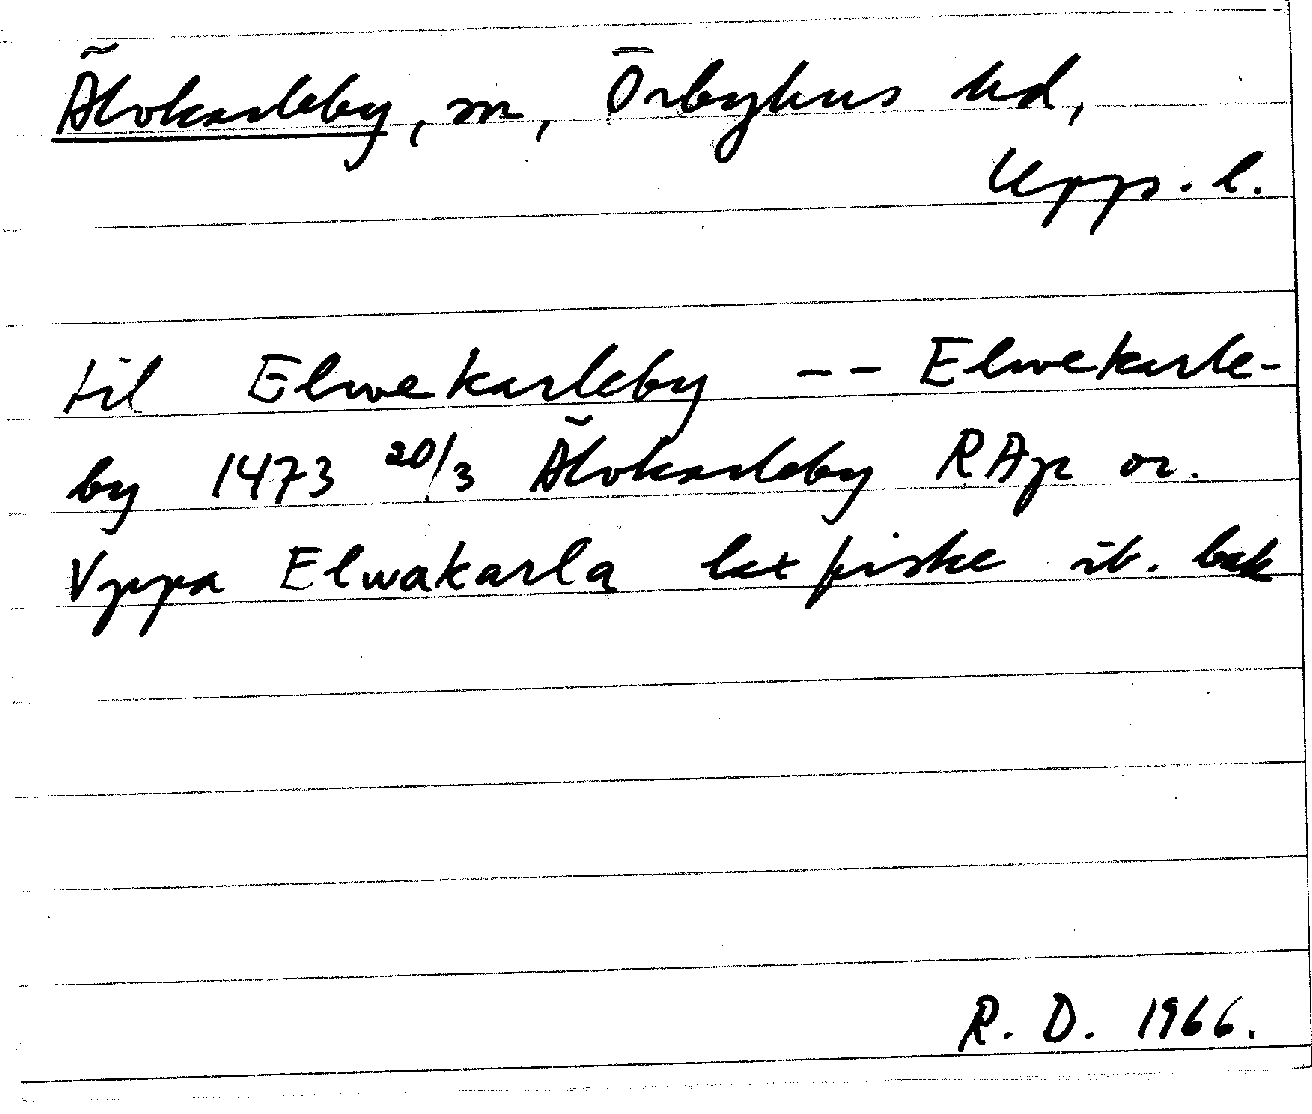 Älvkarleby, sn, Örbyhus hd,
Upps. l.
til Elwekarleby -- Elwekarle-
by 1473 20/3 Älvkarleby RAp or.
Vppa Elwakarla lax fiske ib. bak
R. D. 1966.